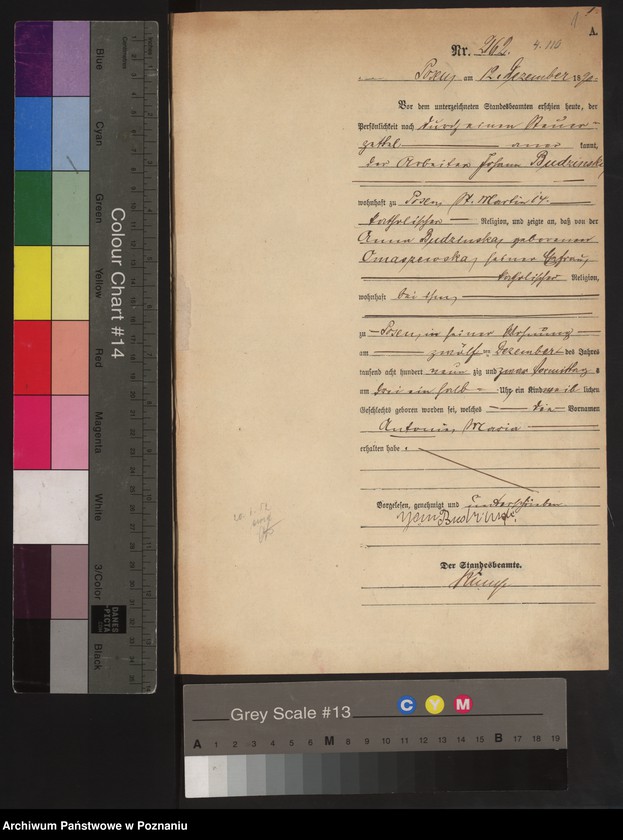 A.
Nr. 262.
Posen, am 12. Dezember 1890.
Vor dem unterzeichneten Standesbeamten erschien heute, der
Persönlichkeit nach durch einen Steuer-
zettel aner kannt,
der Arbeiter Johann Budzinski,
wohnhaft zu Posen, St. Martin
katholischer Religion, und zeigte an, daß von der
Anna Budzinska, geborenen
Omaszewska, seiner Ehefrau,
katholischer Religion,
wohnhaft bei ihm,
zu Posen, in seiner Wohnung
am zwölften Dezember des Jahres
tausend acht hundert neun zig und zwar Vormittags
um drei ein halb Uhr ein Kind weib lichen
Geschlechts geboren worden sei, welches die Vornamen
Antonie, Maria
erhalten habe.
Vorgelesen, genehmigt und unterschrieben
Jan Budzinski.
Der Standesbeamte.
Colour Chart #14
Blue
Cyan
Green
Yellow
Red
Magenta
White
3/Color
Black
Centimetres
DANES
PICTA
.COM
Grey Scale #13
C Y M
A 1 2 3 4 5 6 M 8 9 10 11 12 13 14 15 B 17 18 19
Archiwum Państwowe w Poznaniu